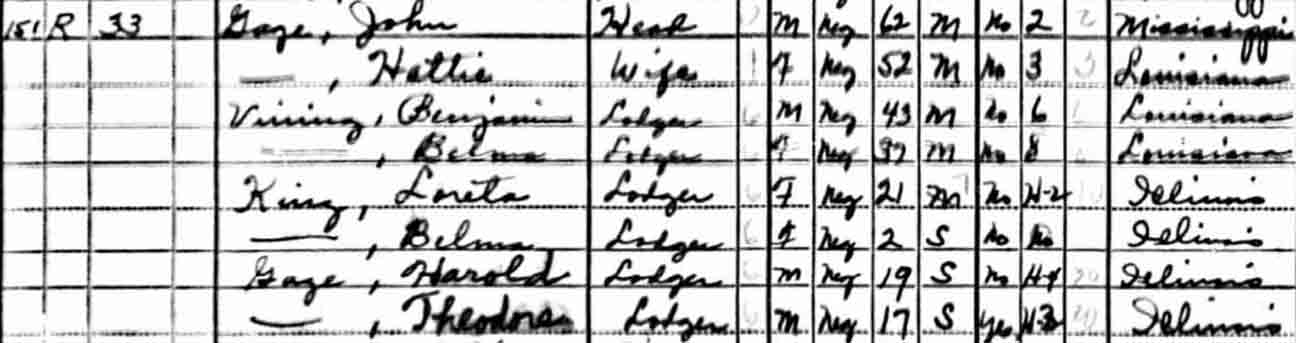 151 R 33 Gaze, John Head M Neg 62 M No 2 Mississippi
—, Hattie Wife F Neg 52 M No 3 Louisiana
Vining, Benjamin Lodger M Neg 43 M No 6 Louisiana
—, Belma Lodger F Neg 37 M No 8 Louisiana
King, Loreta Lodger F Neg 21 M No H-2 Illinois
—, Belma Lodger F Neg 2 S No No Illinois
Gaze, Harold Lodger M Neg 19 S No H-4 Illinois
—, Theodore Lodger M Neg 17 S Yes H-3 Illinois